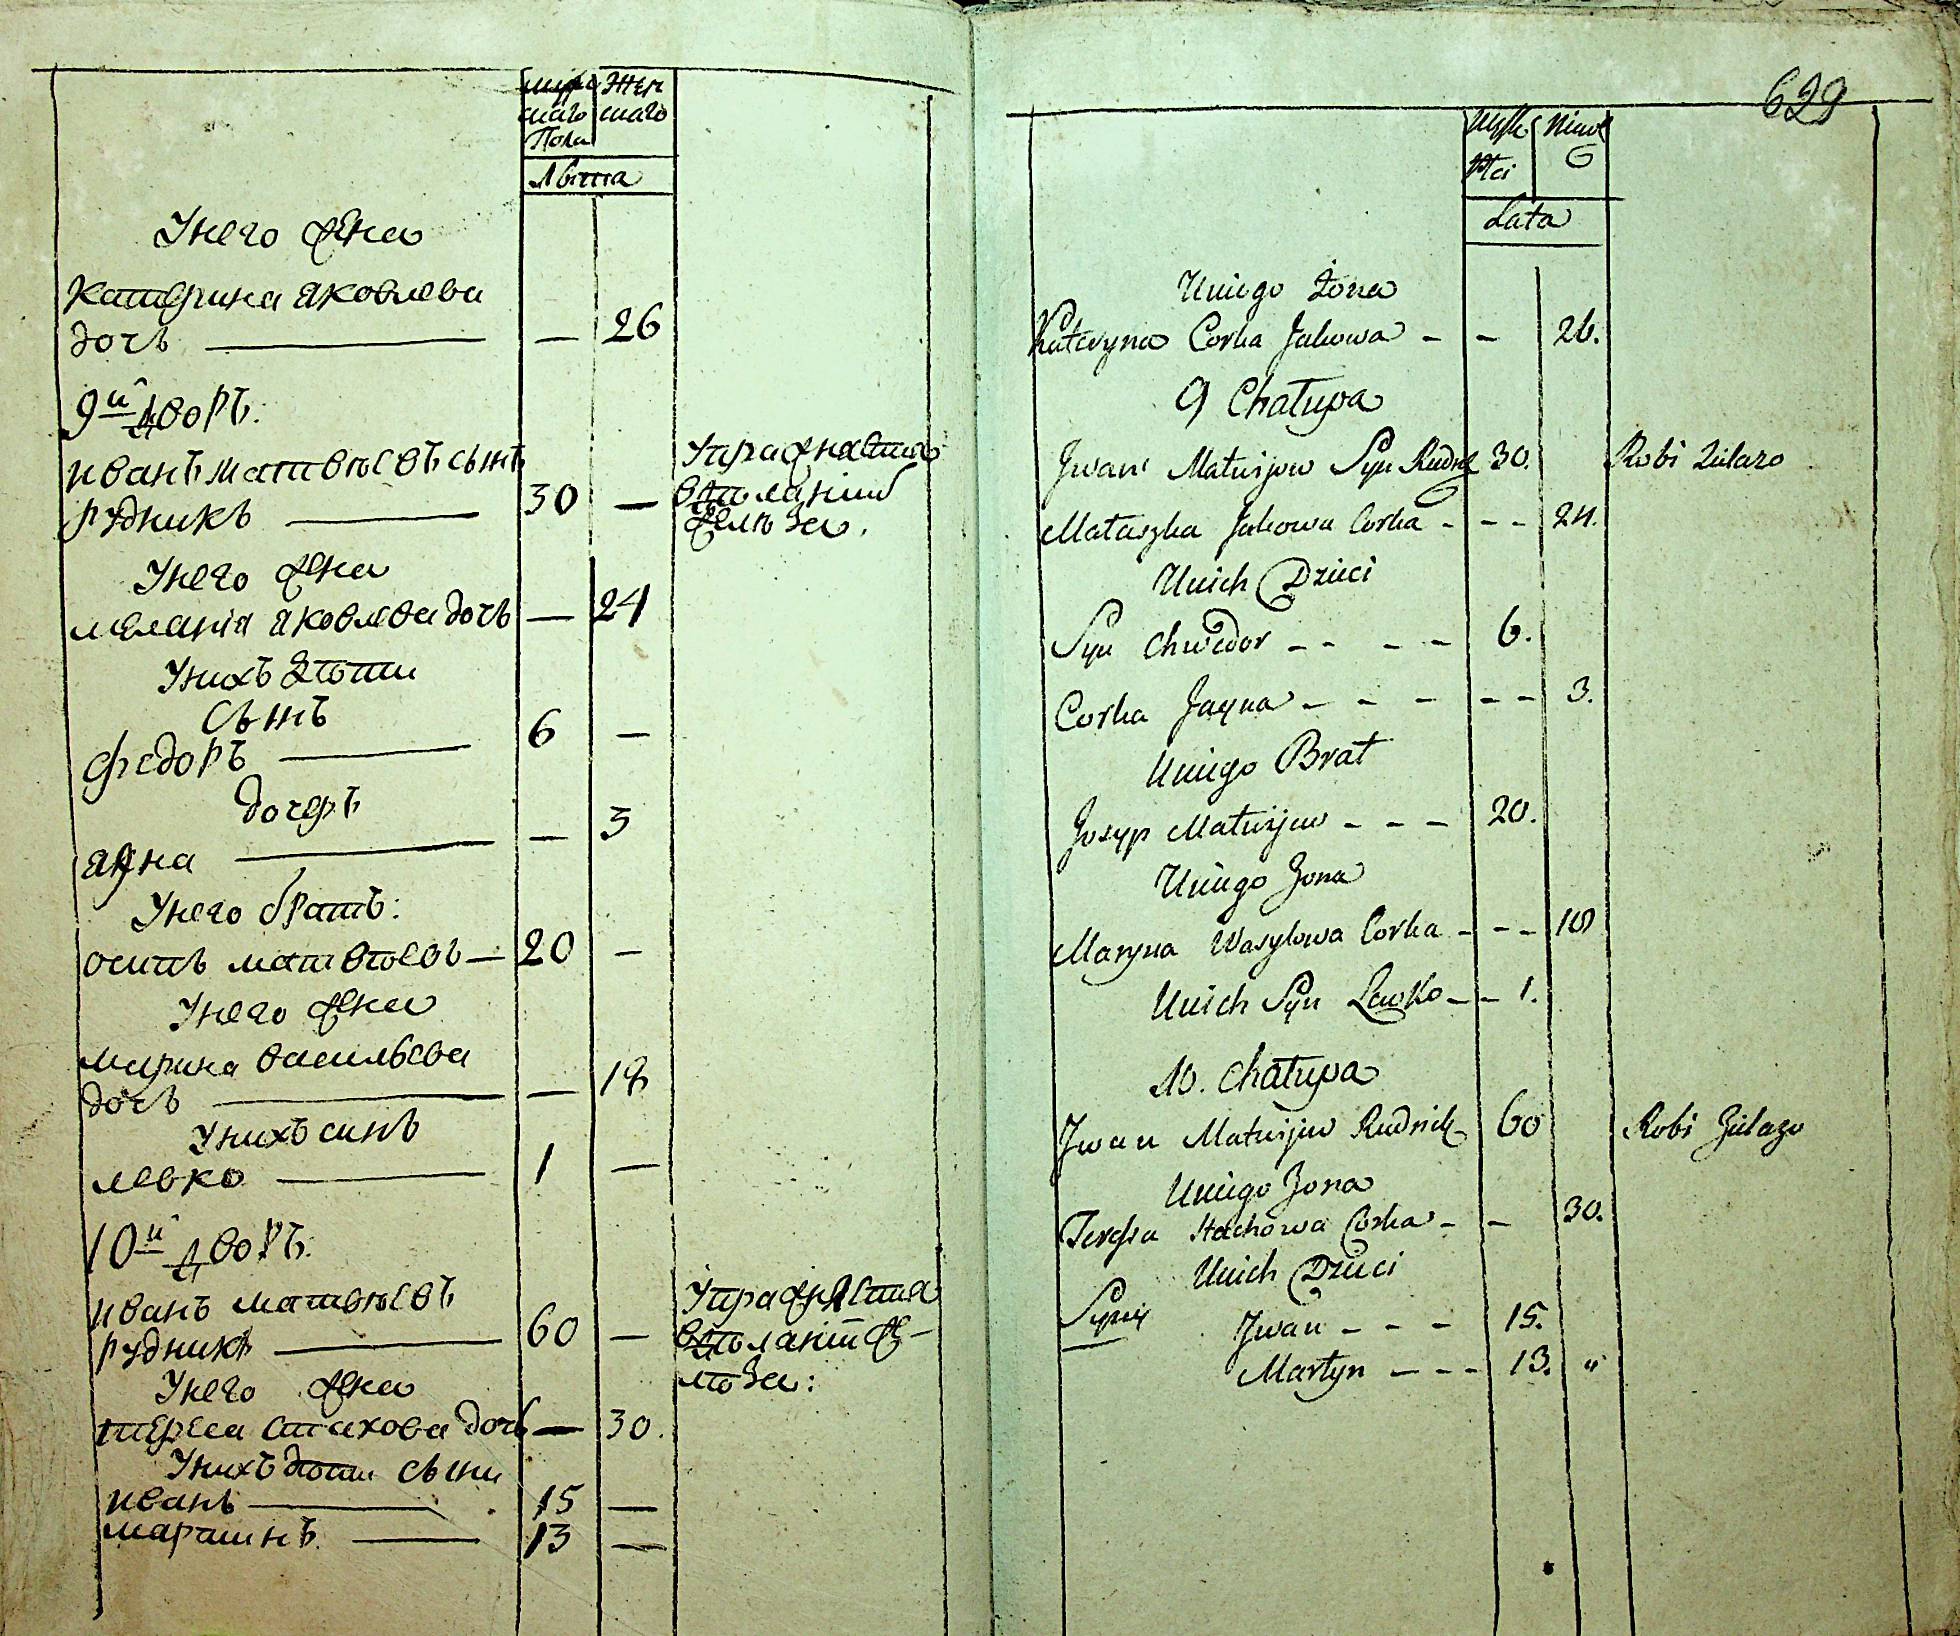 муж Жен
скаго скаго
Пола
Лѣта
Унего жена
Катерина яковлева
дочь — 26
9й дворъ:
иванъ матвѣевъ сынъ
рудникъ 30 —
Упражнается
в дѣланіи
желѣза.
Унего жена
меланія яковлева дочь — 24
Унихъ дѣти
сынъ
федоръ 6 —
дочерь
яѵна — 3
Унего братъ:
осипъ матвѣевъ 20 —
Унего жена
марина васильева
дочь — 18
Унихъ синъ
левко 1 —
10й дворъ:
иванъ матвѣевъ
рудникъ 60 —
Упражняется
в дѣланіи же-
лѣза:
Унего жена
тереса стахова дочь — 30.
Унихъ дѣти сыни
иванъ 15 —
мартинъ. 13 —
629
Lata
Uniego żona
Kateryna Corka Jakowa - - 26.
9 Chatupa
Jwan Matwijew Syn Rudnik 30. Robi Żelazo
Mataszka Jakowa Corka - - - 24.
Unich Dzieci
Syn Chwedor - - - - 6.
Corka Jayna - - - - - - 3.
Uniego Brat
Josyp Matwijew - - - 20.
Uniego Żona
Maryna Wasylowa Corka - - - 18
Unich Syn Lewko - - 1.
10. Chatupa
Jwan Matwijew Rudnik 60 Robi Żelazo
Uniego Żona
Teressa Stachowa Corka - - 30.
Unich Dzieci
Syny Jwan - - - 15.
Martyn - - - 13. "